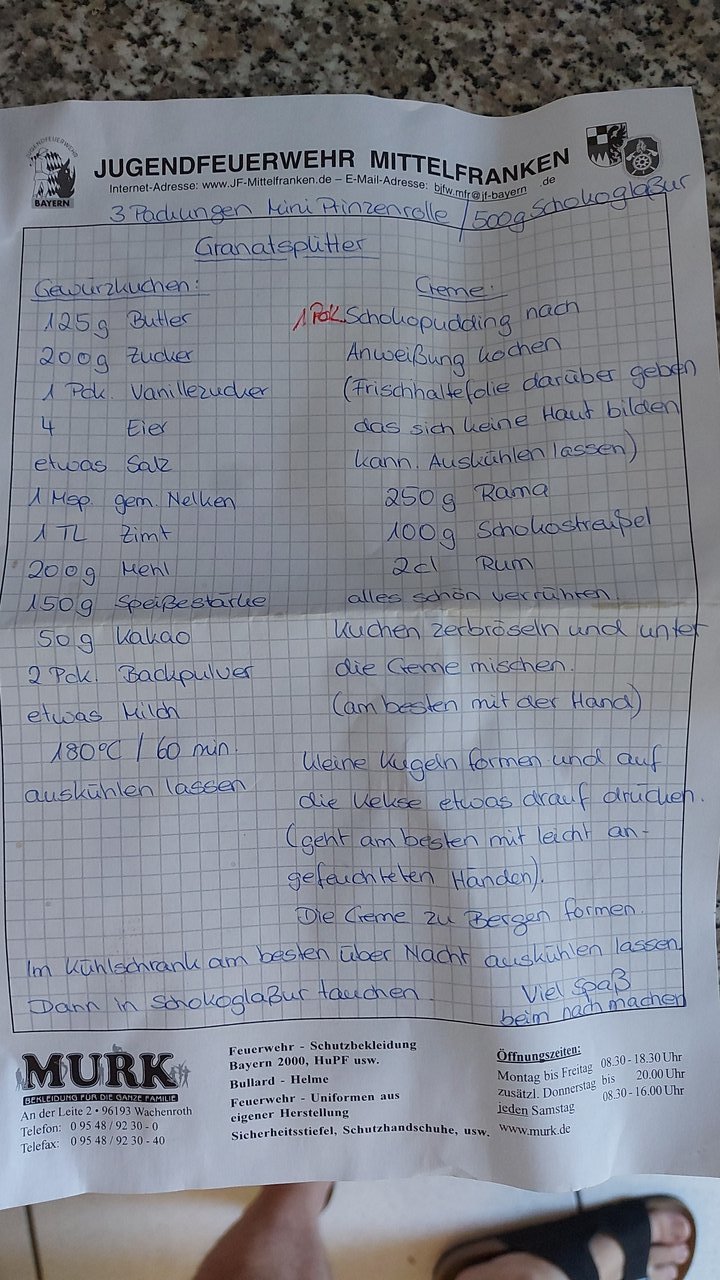 JUGENDFEUERWEHR
BAYERN
JUGENDFEUERWEHR MITTELFRANKEN
Internet-Adresse: www.JF-Mittelfranken.de – E-Mail-Adresse: bjfw.mfr@jf-bayern.de
3 Packungen Mini Prinzenrolle / 500g Schokoglaßur
Granatsplitter
Gewürzkuchen:
125g Butter
200g Zucker
1 Pck. Vanillezucker
4 Eier
etwas Salz
1 Msp. gem. Nelken
1 TL Zimt
200g Mehl
150g Speißestärke
50g Kakao
2 Pck. Backpulver
etwas Milch
180°C / 60 min.
auskühlen lassen
Creme:
1 Pck. Schokopudding nach
Anweißung kochen
(Frischhaltefolie darüber geben
das sich keine Haut bilden
kann. Auskühlen lassen)
250g Rama
100g Schokostreußel
2cl Rum
alles schön verrühren.
Kuchen zerbröseln und unter
die Creme mischen.
(am besten mit der Hand)
kleine Kugeln formen und auf
die Kekse etwas drauf drücken.
(geht am besten mit leicht an-
gefeuchteten Händen).
Die Creme zu Bergen formen.
Im Kühlschrank am besten über Nacht auskühlen lassen
Dann in Schokoglaßur tauchen.
Viel Spaß
beim nachmachen
MURK
BEKLEIDUNG FÜR DIE GANZE FAMILIE
An der Leite 2 • 96193 Wachenroth
Telefon: 0 95 48 / 92 30 - 0
Telefax: 0 95 48 / 92 30 - 40
Feuerwehr - Schutzbekleidung
Bayern 2000, HuPF usw.
Bullard - Helme
Feuerwehr - Uniformen aus
eigener Herstellung
Sicherheitsstiefel, Schutzhandschuhe, usw.
Öffnungszeiten:
Montag bis Freitag 08.30 - 18.30 Uhr
zusätzl. Donnerstag bis 20.00 Uhr
jeden Samstag 08.30 - 16.00 Uhr
www.murk.de